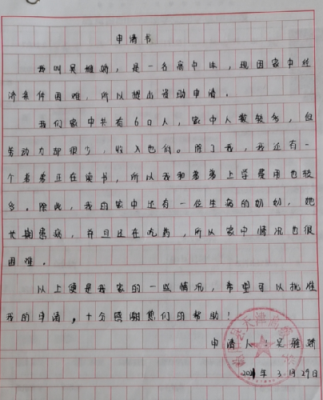 申请书
我叫吴雄骄，是一名高中生，现因家中经
济条件困难，所以提出资助申请。
我们家中共有6口人，家中人数较多，但
劳动力却很少，收入也低。除了我，我还有一
个弟弟正在读书，所以我和弟弟上学费用也较
。除此，我的家中还有一位生病的奶奶，她
长期患病，并且还在吃药，所以家中情况也很
困难。
以上便是我家的一些情况，希望可以批准
我的申请，十分感谢你们的帮助！
申请人：吴雄骄
年3月29日